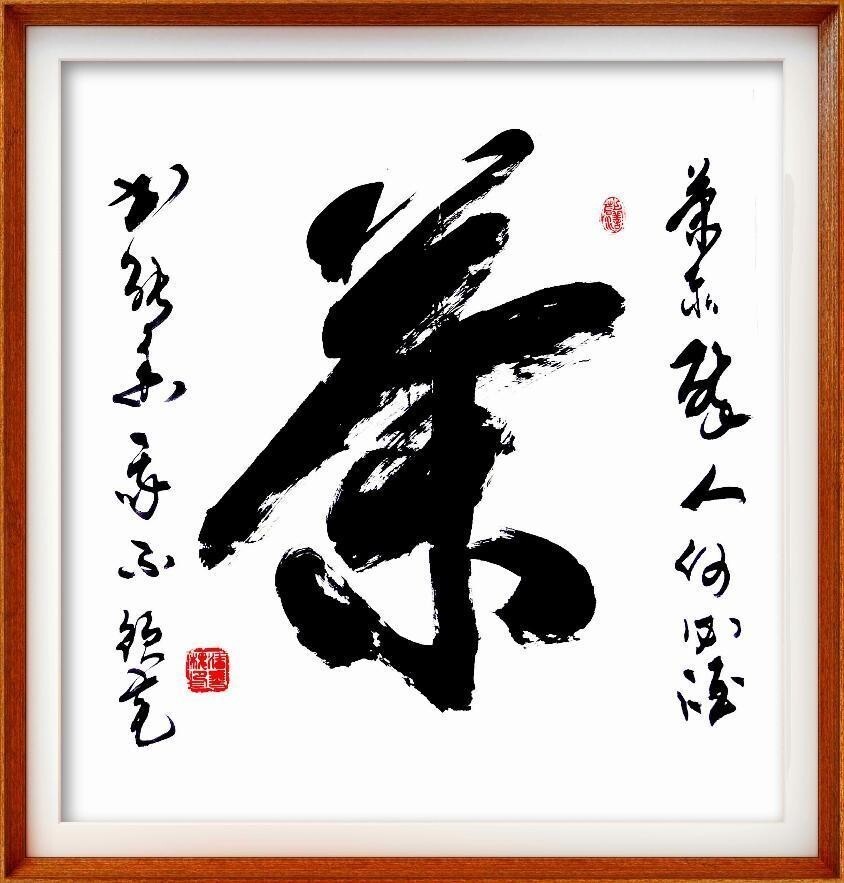 茶
茶亦醉人何必酒
书能香我不须花